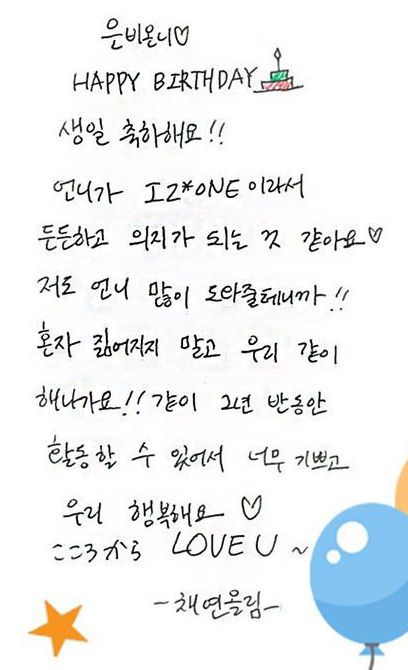 은비온니♡
HAPPY BIRTHDAY
생일 축하해요!!
언니가 IZ*ONE 이라서
든든하고 의지가 되는 것 같아요♡
저도 언니 많이 도와줄테니까!!
혼자 짊어지지 말고 우리 같이
해나가요!! 같이 2년 반동안
활동할 수 있어서 너무 기쁘고
우리 행복해요 ♡
こころから LOVE U ~
-채연올림-